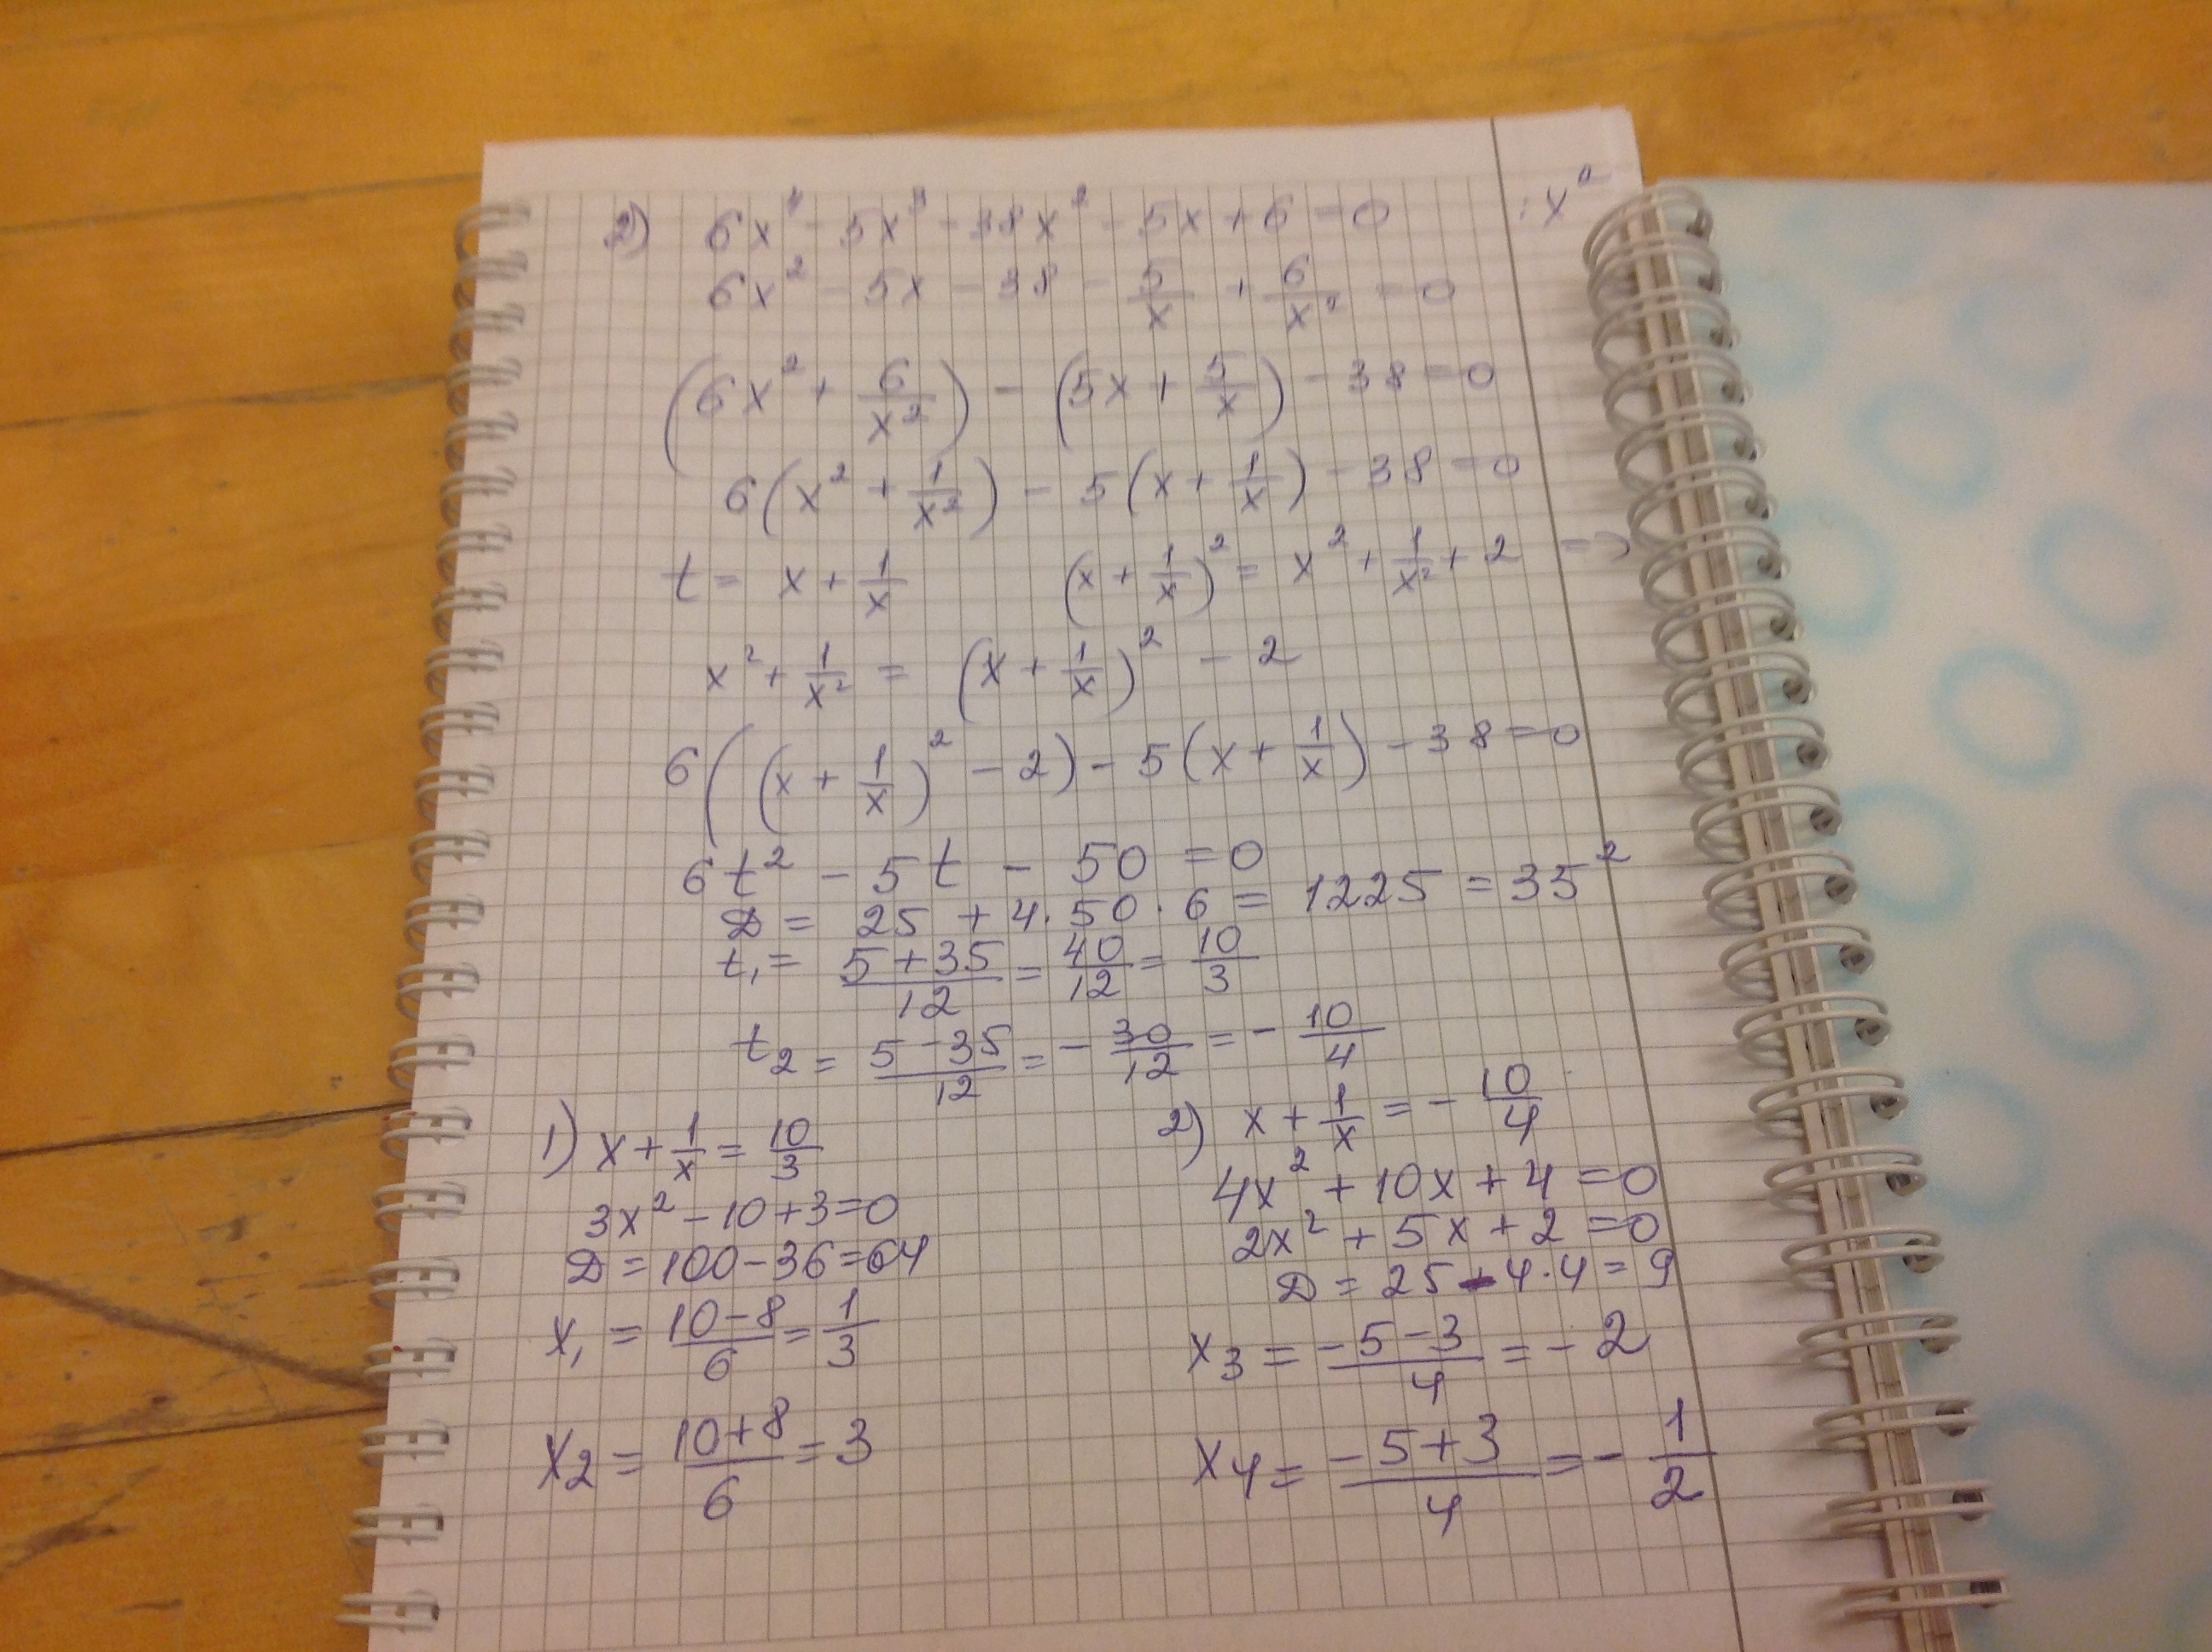 2) 6x⁴ - 5x³ - 38x² - 5x + 6 = 0 : x²
6x² - 5x - 38 - 5/x + 6/x² = 0
(6x² + 6/x²) - (5x + 5/x) - 38 = 0
6(x² + 1/x²) - 5(x + 1/x) - 38 = 0
t = x + 1/x (x + 1/x)² = x² + 1/x² + 2 =>
x² + 1/x² = (x + 1/x)² - 2
6((x + 1/x)² - 2) - 5(x + 1/x) - 38 = 0
6t² - 5t - 50 = 0
D = 25 + 4·50·6 = 1225 = 35²
t₁ = (5+35)/12 = 40/12 = 10/3
t₂ = (5-35)/12 = -30/12 = -10/4
1) x + 1/x = 10/3
3x² - 10 + 3 = 0
D = 100 - 36 = 64
x₁ = (10-8)/6 = 1/3
x₂ = (10+8)/6 = 3
2) x + 1/x = -10/4
4x² + 10x + 4 = 0
2x² + 5x + 2 = 0
D = 25 - 4·4 = 9
x₃ = (-5-3)/4 = -2
x₄ = (-5+3)/4 = -1/2